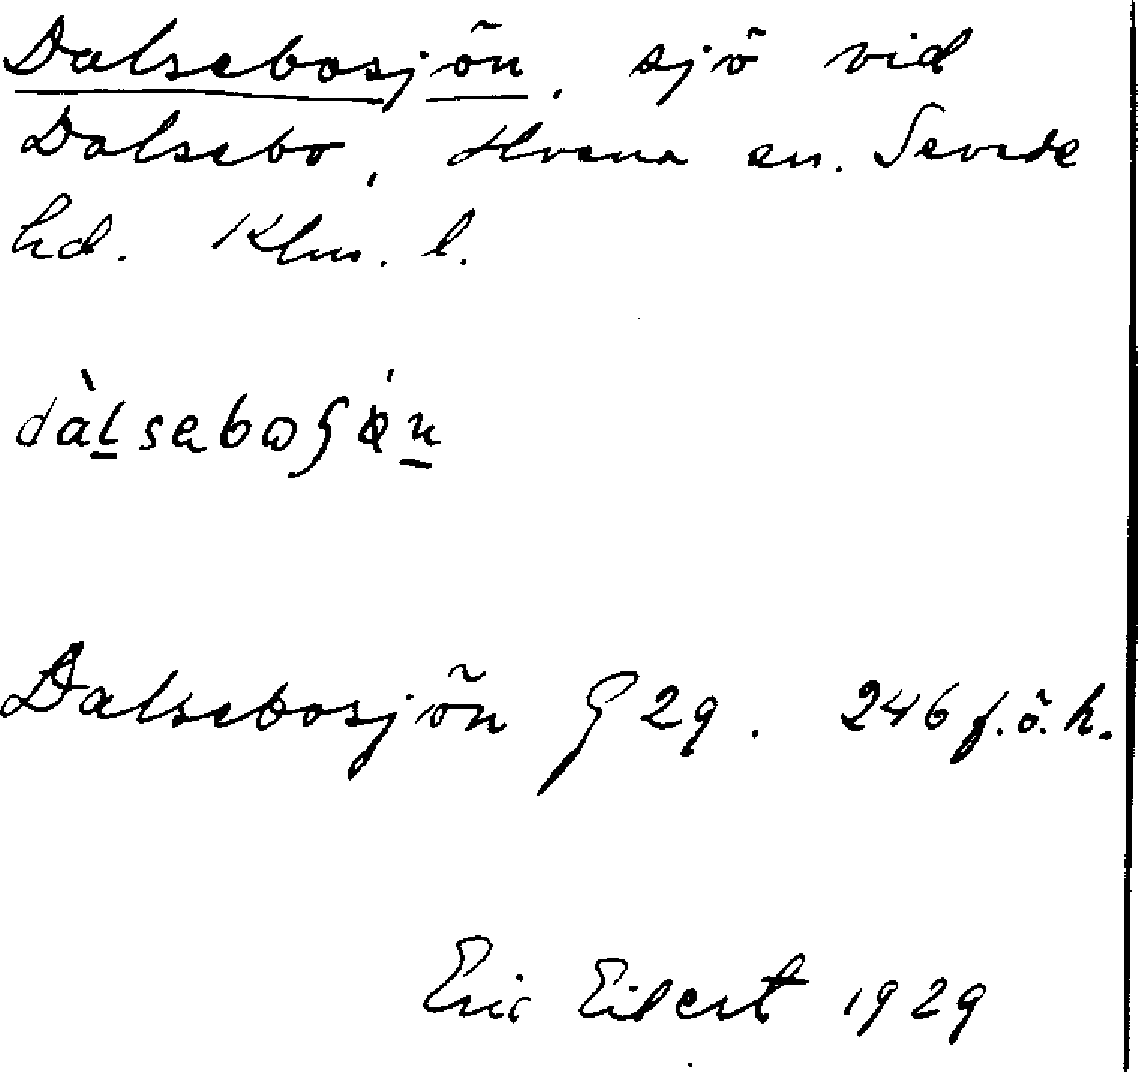 Dalsebosjön, sjö vid
Dalsebo, Hvena sn. Sevede
hd. Klm. l.
Dalsebosjön G 29. 246 f.ö.h.
Eric Eilert 1929